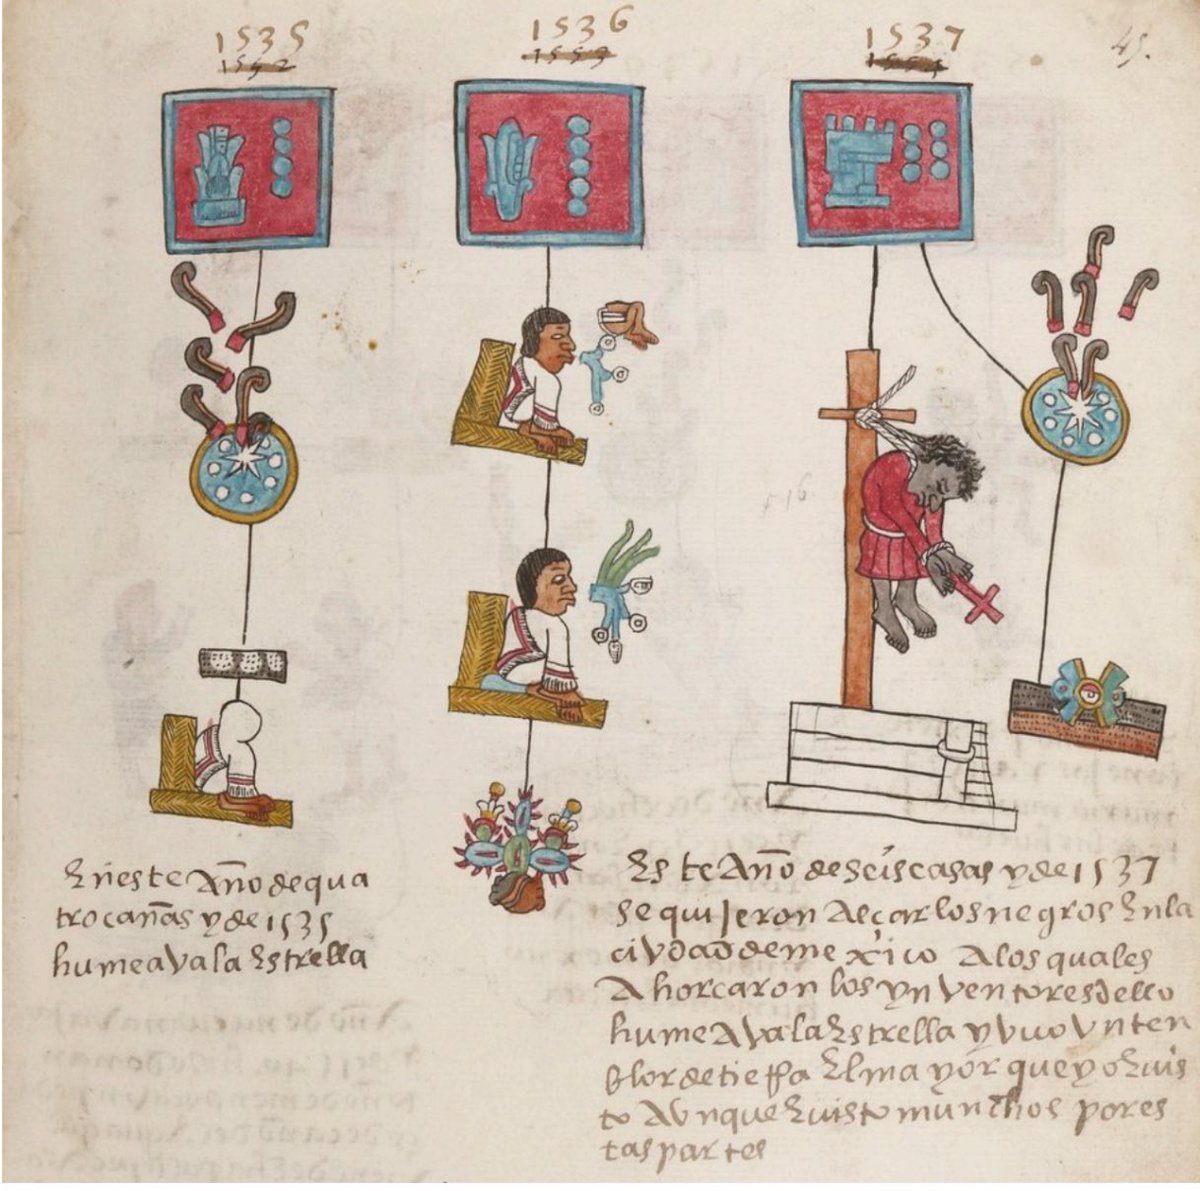 1535
1536
1537
45.
En este Año de qua
tro cañas y de 1535
humeava la Estrella
Es te Año de seis casas y de 1537
se quisieron Alçar los negros En la
ciudad de mexico A los quales
Ahorcaron los ynventores dello
humeAva la Estrella y vuo vn ten
blor de tierra El mayor que yo E vis
to Avnque E visto munchos por es
tas partes